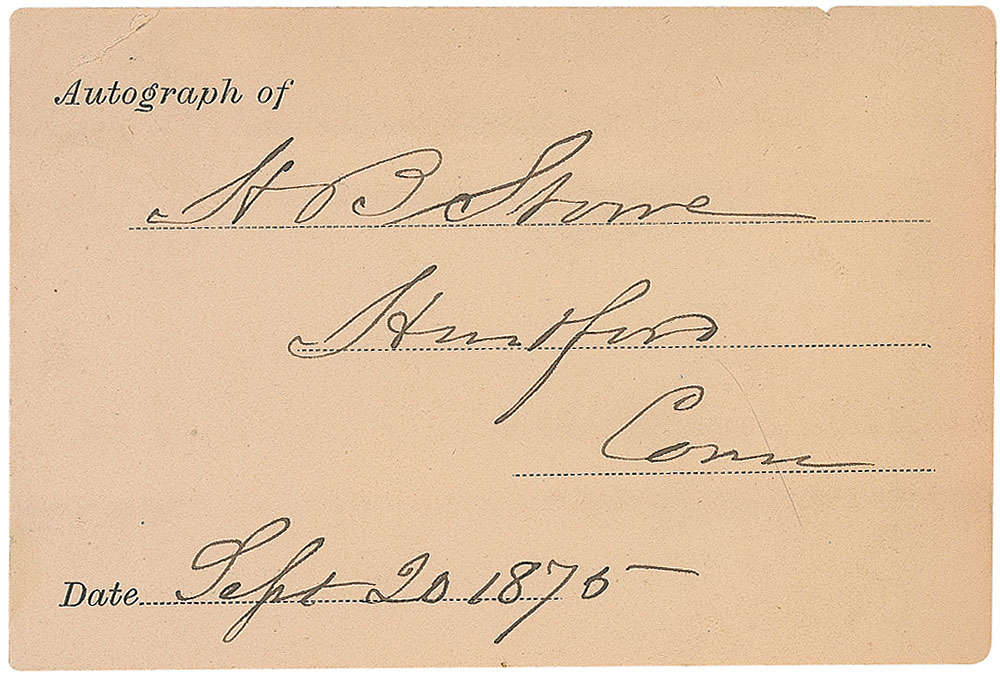 Autograph of
H B Stowe
Hartford
Conn
Date Sept 20 1875